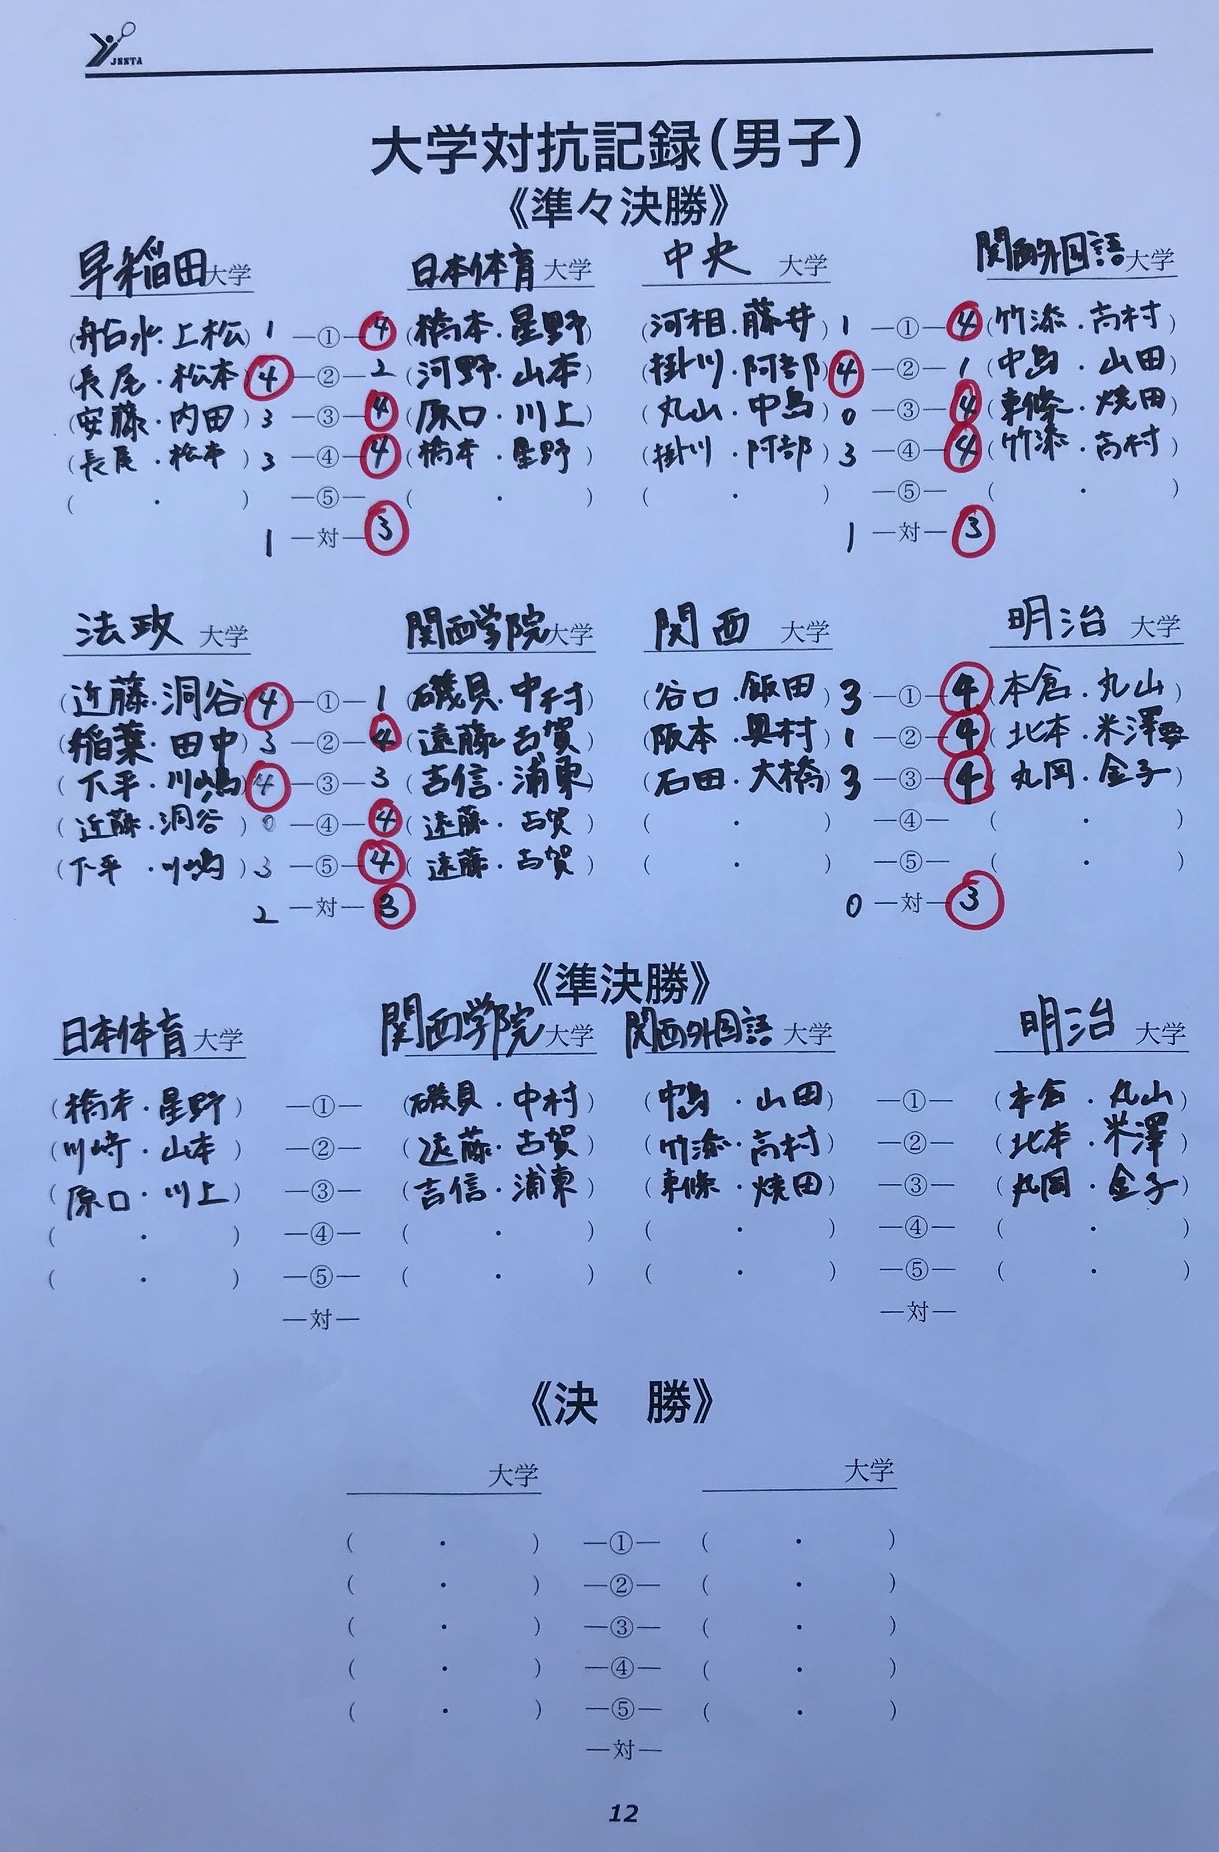 JSSTA
大学対抗記録(男子)
《準々決勝》
早稲田大学 日本体育大学 中央大学 関西外国語大学
(船水・上松) 1 —①— 4 (橋本・星野) (河相・藤井) 1 —①— 4 (竹添・高村)
(長尾・松本) 4 —②— 2 (河野・山本) (掛川・阿部) 4 —②— 1 (中島・山田)
(安藤・内田) 3 —③— 4 (原口・川上) (丸山・中島) 0 —③— 4 (東條・焼田)
(長尾・松本) 3 —④— 4 (橋本・星野) (掛川・阿部) 3 —④— 4 (竹添・高村)
( ・ ) —⑤— ( ・ ) ( ・ ) —⑤— ( ・ )
1 —対— 3 1 —対— 3
法政大学 関西学院大学 関西大学 明治大学
(近藤・洞谷) 4 —①— 1 (磯貝・中村) (谷口・飯田) 3 —①— 4 (本倉・丸山)
(稲葉・田中) 3 —②— 4 (遠藤・古賀) (阪本・奥村) 1 —②— 4 (北本・米澤要)
(下平・川嶋) 4 —③— 3 (吉信・浦東) (石田・大橋) 3 —③— 4 (丸岡・金子)
(近藤・洞谷) 0 —④— 4 (遠藤・古賀) ( ・ ) —④— ( ・ )
(下平・川嶋) 3 —⑤— 4 (遠藤・古賀) ( ・ ) —⑤— ( ・ )
2 —対— 3 0 —対— 3
《準決勝》
日本体育大学 関西学院大学 関西外国語大学 明治大学
(橋本・星野) —①— (磯貝・中村) (中島・山田) —①— (本倉・丸山)
(川崎・山本) —②— (遠藤・古賀) (竹添・高村) —②— (北本・米澤)
(原口・川上) —③— (吉信・浦東) (東條・焼田) —③— (丸岡・金子)
( ・ ) —④— ( ・ ) ( ・ ) —④— ( ・ )
( ・ ) —⑤— ( ・ ) ( ・ ) —⑤— ( ・ )
—対— —対—
《決 勝》
大学 大学
( ・ ) —①— ( ・ )
( ・ ) —②— ( ・ )
( ・ ) —③— ( ・ )
( ・ ) —④— ( ・ )
( ・ ) —⑤— ( ・ )
—対—
12